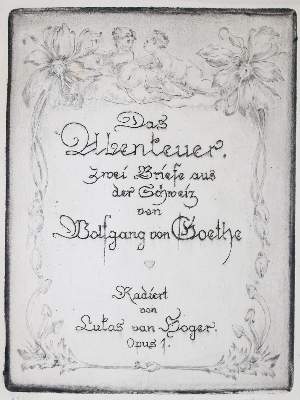 Das
Abenteuer.
zwei Briefe aus
der Schweiz
von
Wolfgang von Goethe
Radiert
von
Lukas van Hoger.
Opus 1.